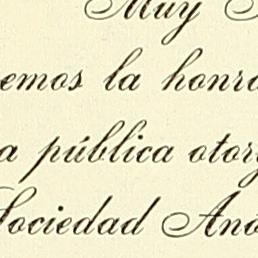 Muy S
emos la honra
a pública otorg
Sociedad Anó